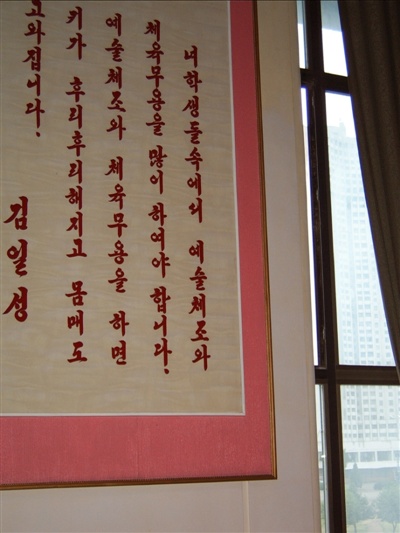 녀학생들속에서 예술체조와
체육무용을 많이 하여야 합니다.
예술체조와 체육무용을 하면
키가 후리후리해지고 몸매도
고와집니다.
김일성